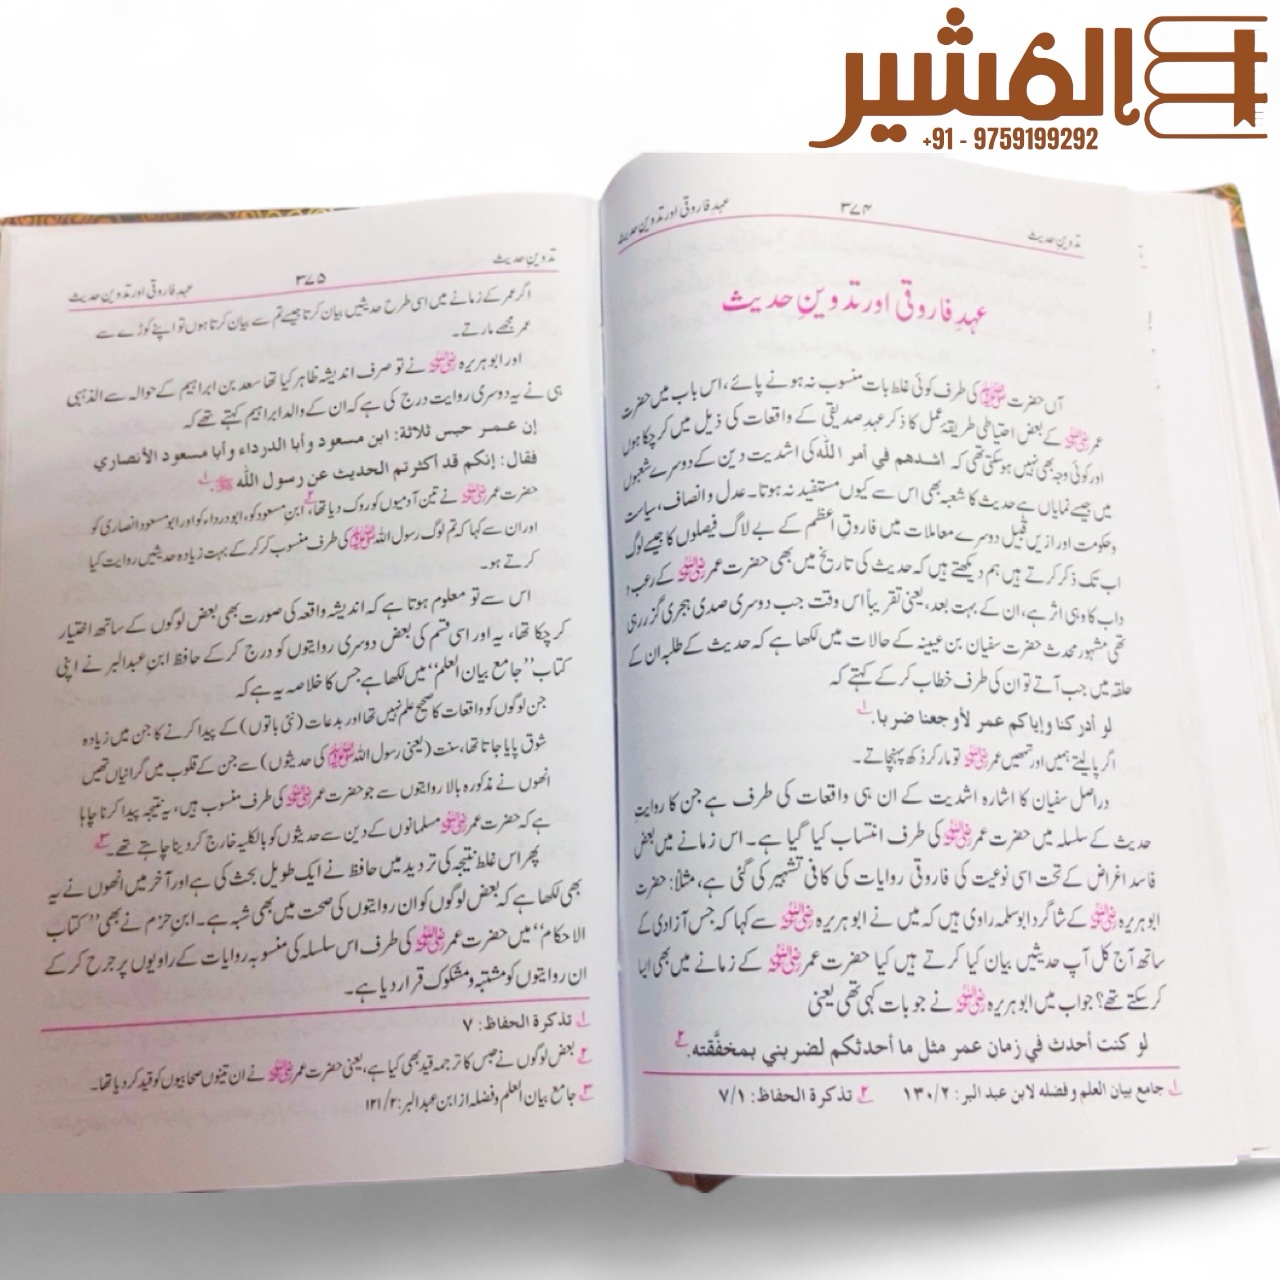 المشیر
+91 - 9759199292
تدوینِ حدیث
۳۷۴
عہدِ فاروقی اور تدوینِ حدیث
عہدِ فاروقی اور تدوینِ حدیث
آں حضرت ﷺ کی طرف کوئی غلط بات منسوب نہ ہونے پائے، اس باب میں حضرت
عمر رضی اللہ عنہ کے بعض احتیاطی طریقۂ عمل کا ذکر عہدِ صدیقی کے واقعات کی ذیل میں کر چکا ہوں
اور کوئی وجہ بھی نہیں ہوسکتی تھی کہ اشدهم في أمر الله کی اشدیت دین کے دوسرے شعبوں
میں جیسے نمایاں ہے حدیث کا شعبہ بھی اس سے کیوں مستفید نہ ہوتا۔ عدل و انصاف، سیاست
و حکومت اور ازیں قبیل دوسرے معاملات میں فاروقِ اعظم کے بے لاگ فیصلوں کا جیسے لوگ
اب تک ذکر کرتے ہیں ہم دیکھتے ہیں کہ حدیث کی تاریخ میں بھی حضرت عمر رضی اللہ عنہ کے رعب و
داب کا وہی اثر ہے، ان کے بہت بعد، یعنی تقریباً اس وقت جب دوسری صدی ہجری گزر رہی
تھی مشہور محدث حضرت سفیان بن عیینہ کے حالات میں لکھا ہے کہ حدیث کے طلبہ ان کے
حلقہ میں جب آتے تو ان کی طرف خطاب کر کے کہتے کہ
لو أدركنا وإياكم عمر لأوجعنا ضربا. ۱
اگر پا لیتے ہمیں اور تمھیں عمر رضی اللہ عنہ تو مار کر دُکھ پہنچاتے۔
دراصل سفیان کا اشارہ اشدیت کے ان ہی واقعات کی طرف ہے جن کا روایتِ
حدیث کے سلسلہ میں حضرت عمر رضی اللہ عنہ کی طرف انتساب کیا گیا ہے۔ اس زمانے میں بعض
فاسد اغراض کے تحت اسی نوعیت کی فاروقی روایات کی کافی تشہیر کی گئی ہے، مثلاً: حضرت
ابو ہریرہ رضی اللہ عنہ کے شاگرد ابو سلمہ راوی ہیں کہ میں نے ابو ہریرہ رضی اللہ عنہ سے کہا کہ جس آزادی کے
ساتھ آج کل آپ حدیثیں بیان کیا کرتے ہیں کیا حضرت عمر رضی اللہ عنہ کے زمانے میں بھی ایسا
کر سکتے تھے؟ جواب میں ابو ہریرہ رضی اللہ عنہ نے جو بات کہی تھی یعنی
لو كنت أحدث في زمان عمر مثل ما أحدثكم لضربني بمخفقته. ۲
۱ جامع بيان العلم وفضله لابن عبد البر: ۱۳۰/۲ ۲ تذكرة الحفاظ: ۷/۱
تدوینِ حدیث
۳۷۵
عہدِ فاروقی اور تدوینِ حدیث
اگر عمر کے زمانے میں اسی طرح حدیثیں بیان کرتا جیسے تم سے بیان کرتا ہوں تو اپنے کوڑے سے
عمر مجھے مارتے۔
اور ابو ہریرہ رضی اللہ عنہ نے تو صرف اندیشہ ظاہر کیا تھا سعد بن ابراہیم کے حوالہ سے الذہبی
ہی نے یہ دوسری روایت درج کی ہے کہ ان کے والد ابراہیم کہتے تھے کہ
إن عمر حبس ثلاثة: ابن مسعود وأبا الدرداء وأبا مسعود الأنصاري
فقال: إنكم قد أكثرتم الحديث عن رسول الله ﷺ. ۱
حضرت عمر رضی اللہ عنہ نے تین آدمیوں کو روک دیا تھا،۲ ابنِ مسعود کو، ابو درداء کو اور ابو مسعود انصاری کو
اور ان سے کہا کہ تم لوگ رسول اللہ ﷺ کی طرف منسوب کر کر کے بہت زیادہ حدیثیں روایت کیا
کرتے ہو۔
اس سے تو معلوم ہوتا ہے کہ اندیشہ واقعہ کی صورت بھی بعض لوگوں کے ساتھ اختیار
کر چکا تھا، یہ اور اسی قسم کی بعض دوسری روایتوں کو درج کر کے حافظ ابنِ عبد البر نے اپنی
کتاب ’’جامع بیان العلم‘‘ میں لکھا ہے جس کا خلاصہ یہ ہے کہ
جن لوگوں کو واقعات کا صحیح علم نہیں تھا اور بدعات (نئی باتوں) کے پیدا کرنے کا جن میں زیادہ
شوق پایا جاتا تھا، سنت (یعنی رسول اللہ ﷺ کی حدیثوں) سے جن کے قلوب میں گرانیاں تھیں
انھوں نے مذکورہ بالا روایتوں سے جو حضرت عمر رضی اللہ عنہ کی طرف منسوب ہیں، یہ نتیجہ پیدا کرنا چاہا
ہے کہ حضرت عمر رضی اللہ عنہ مسلمانوں کے دین سے حدیثوں کو بالکلیہ خارج کر دینا چاہتے تھے۔ ۳
پھر اس غلط نتیجہ کی تردید میں حافظ نے ایک طویل بحث کی ہے اور آخر میں انھوں نے یہ
بھی لکھا ہے کہ بعض لوگوں کو ان روایتوں کی صحت میں بھی شبہ ہے۔ ابنِ حزم نے بھی ’’کتاب
الاحکام‘‘ میں حضرت عمر رضی اللہ عنہ کی طرف اس سلسلہ کی منسوبہ روایات کے راویوں پر جرح کر کے
ان روایتوں کو مشتبہ و مشکوک قرار دیا ہے۔
۱ تذكرة الحفاظ: ۷
۲ بعض لوگوں نے حبس کا ترجمہ قید بھی کیا ہے، یعنی حضرت عمر رضی اللہ عنہ نے ان تینوں صحابیوں کو قید کر دیا تھا۔
۳ جامع بیان العلم وفضلہ از ابن عبد البر: ۱۲۱/۲